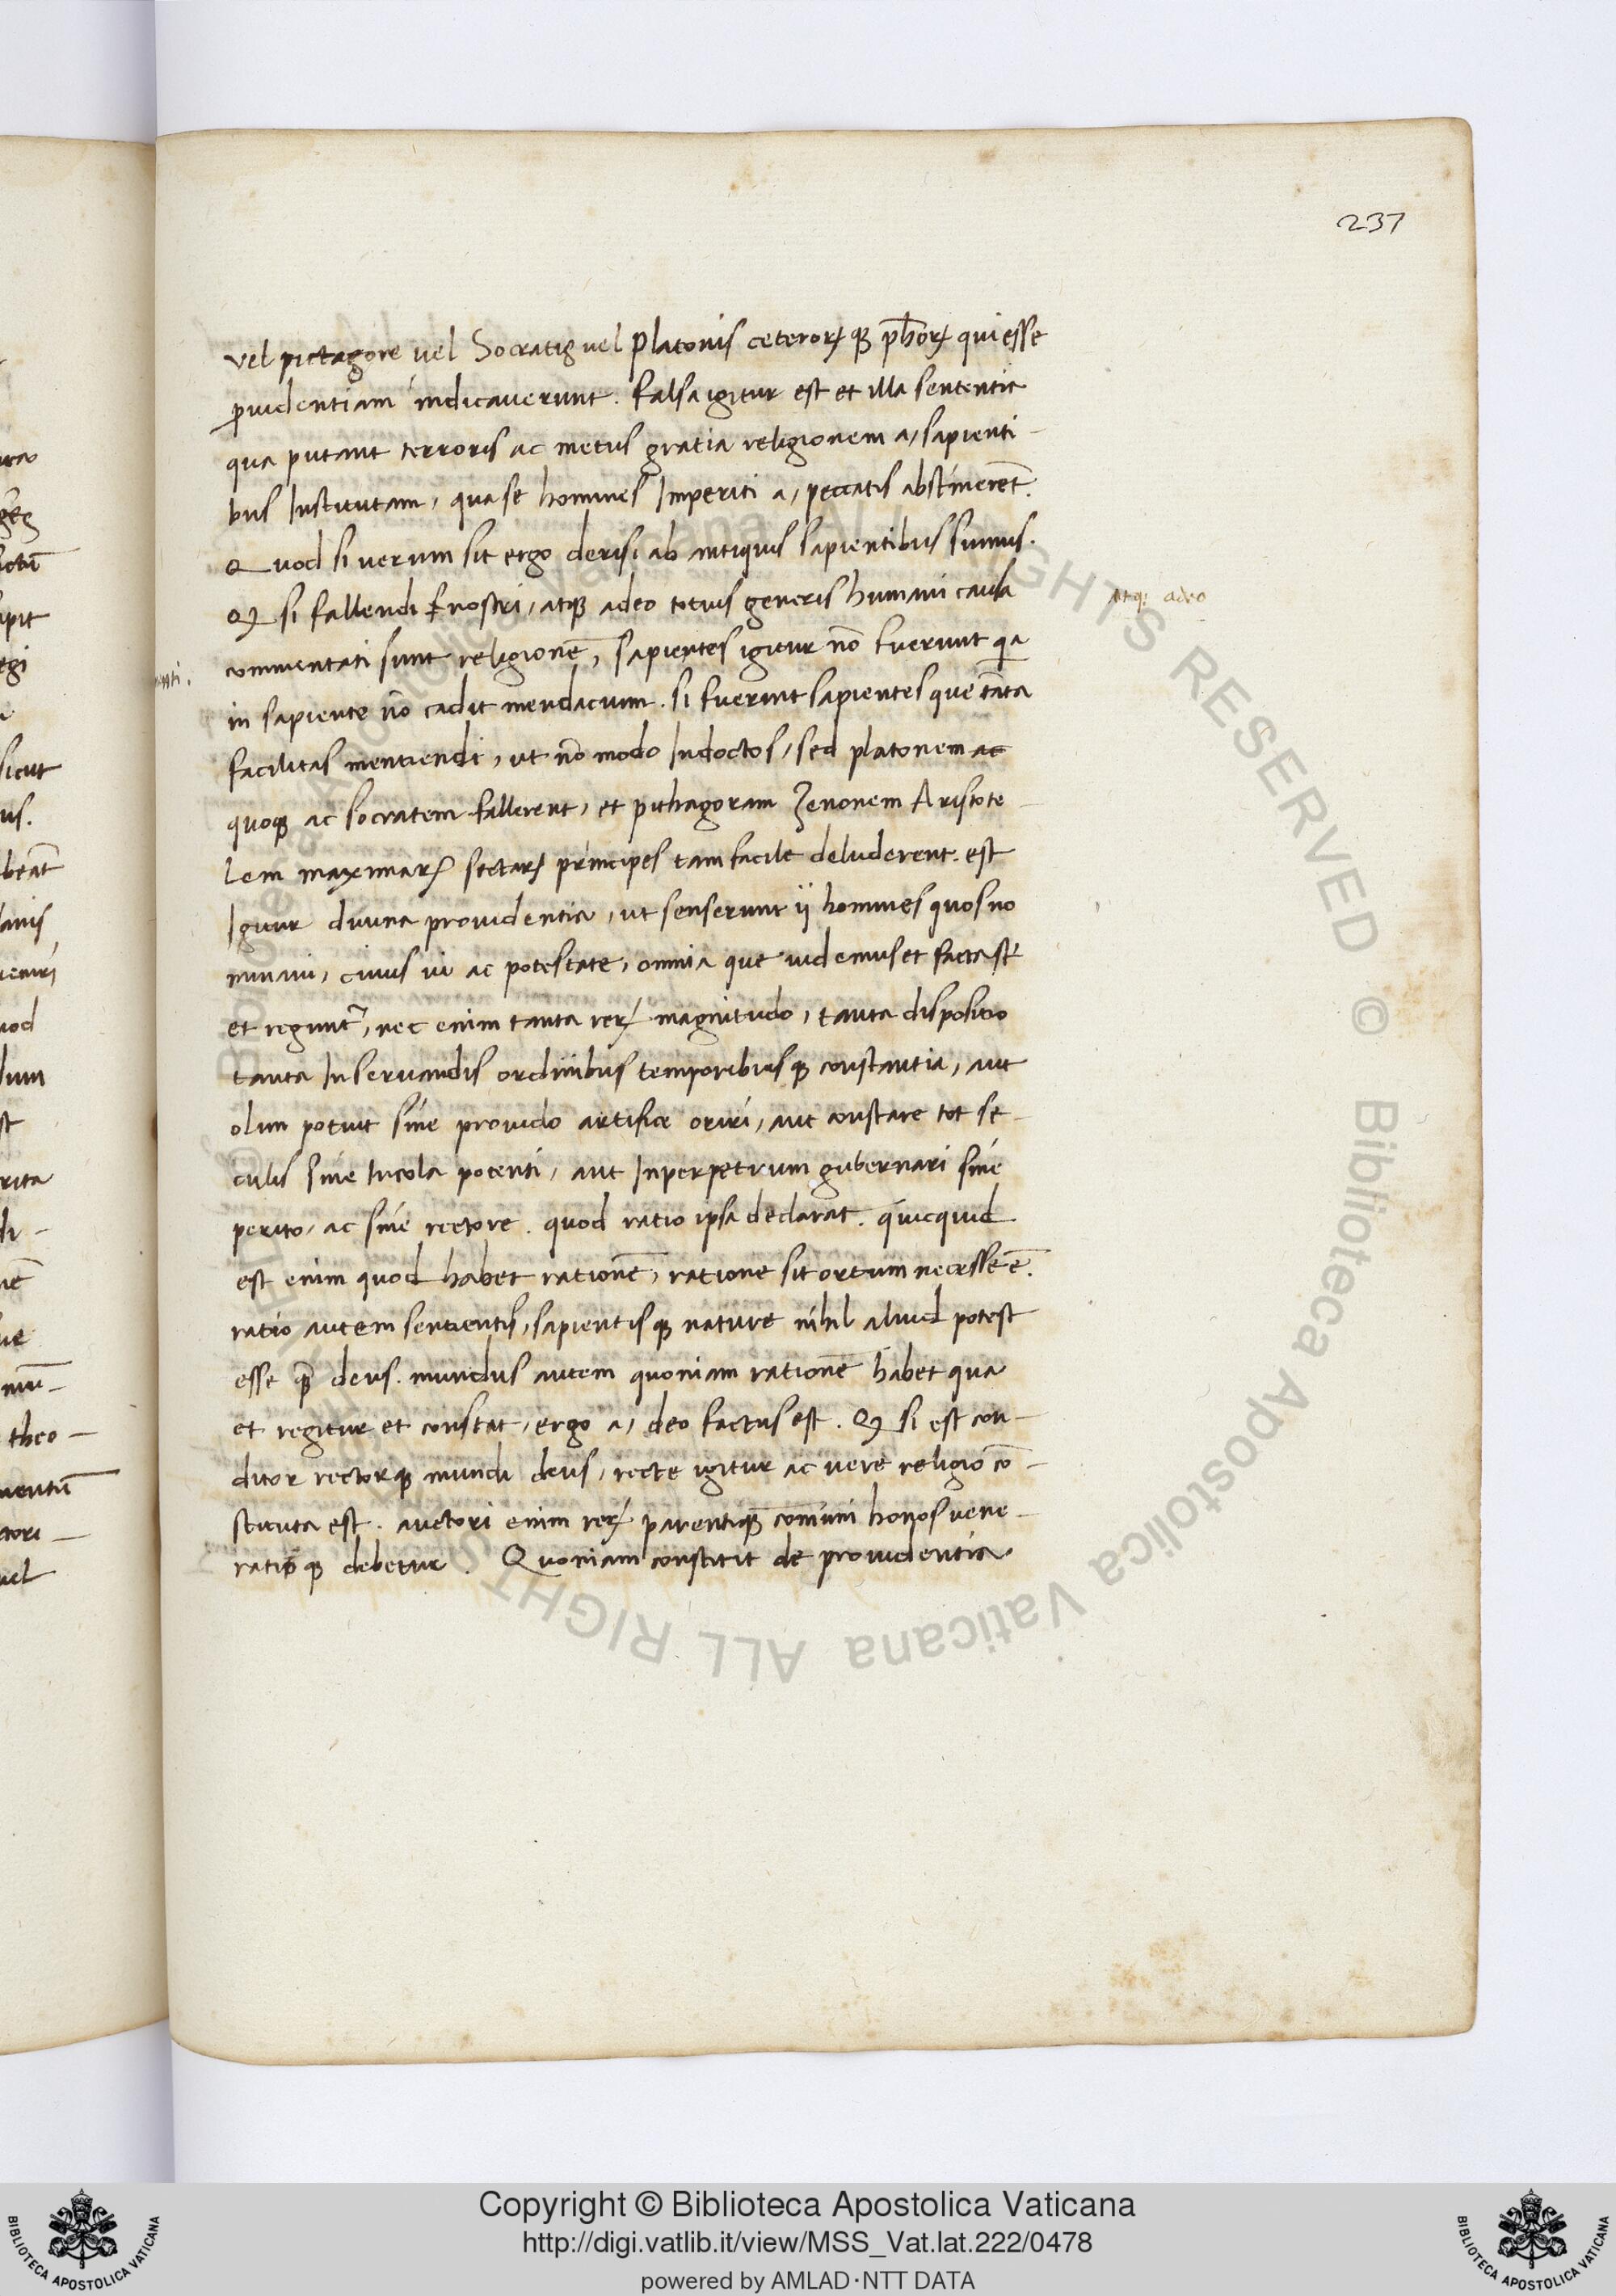 237
vel pictagore vel Socratis vel Platonis ceterorꝝ qꝫ ph̄orꝝ qui esse
ꝓuidentiam indicauerunt. falsa igitur est et illa sententia
qua putant terroris ac metus gratia religionem a, sapienti-
bus Institutam, qua se homines Imperiti a, peccatis abstinerēt.
Quod si verum sit ergo derisi ab antiquis sapientibus sumus.
Qꝫ si fallendi nostri, atqꝫ adeo totius generis humani causa
atqꝫ adeo
commentati sunt religionē, sapientes igitur nō fuerunt qia
in sapiente nō cadit mendacium. si fuerunt sapientes que tāta
facilitas mentiendi, ut nō modo Indoctos, sed platonem ac
quoqꝫ ac socratem fallerent, et pithagoram Zenonem Aristote-
lem maximarꝝ sectarꝝ principes tam facile deluderent. est
Igitur diuina prouidentia, ut senserunt ij homines quos no
minaui, cuius ui ac potestate, omnia que uidemus et facta sūt
et regunt᷑, nec enim tanta rerꝝ magnitudo, tanta dispositio
tanta In seruandis ordinibus temporibusqꝫ constantia, aut
olim potuit sine prouido artifice oriri, aut constare tot se-
culis sine Incola potenti, aut In perpetuum gubernari sine
perito, ac sine rectore. quod ratio ipsa declarat. quicquid
est enim quod habet rationē, ratione sit ortum necesse ē.
ratio autem sentientis, sapientisqꝫ nature nihil aliud potest
esse qm̄ deus. mundus autem quoniam rationē habet qua
et regitur et constat, ergo a, deo factus est. Qꝫ si est con-
ditor rectorqꝫ mundi deus, recte igitur ac uere religio cō-
stituta est. auctori enim rerꝝ parentiqꝫ comūni honos uene-
ratioqꝫ debetur. Quoniam constitit de prouidentia
Copyright © Biblioteca Apostolica Vaticana
http://digi.vatlib.it/view/MSS_Vat.lat.222/0478
powered by AMLAD·NTT DATA
BIBLIOTECA APOSTOLICA VATICANA
BIBLIOTECA APOSTOLICA VATICANA